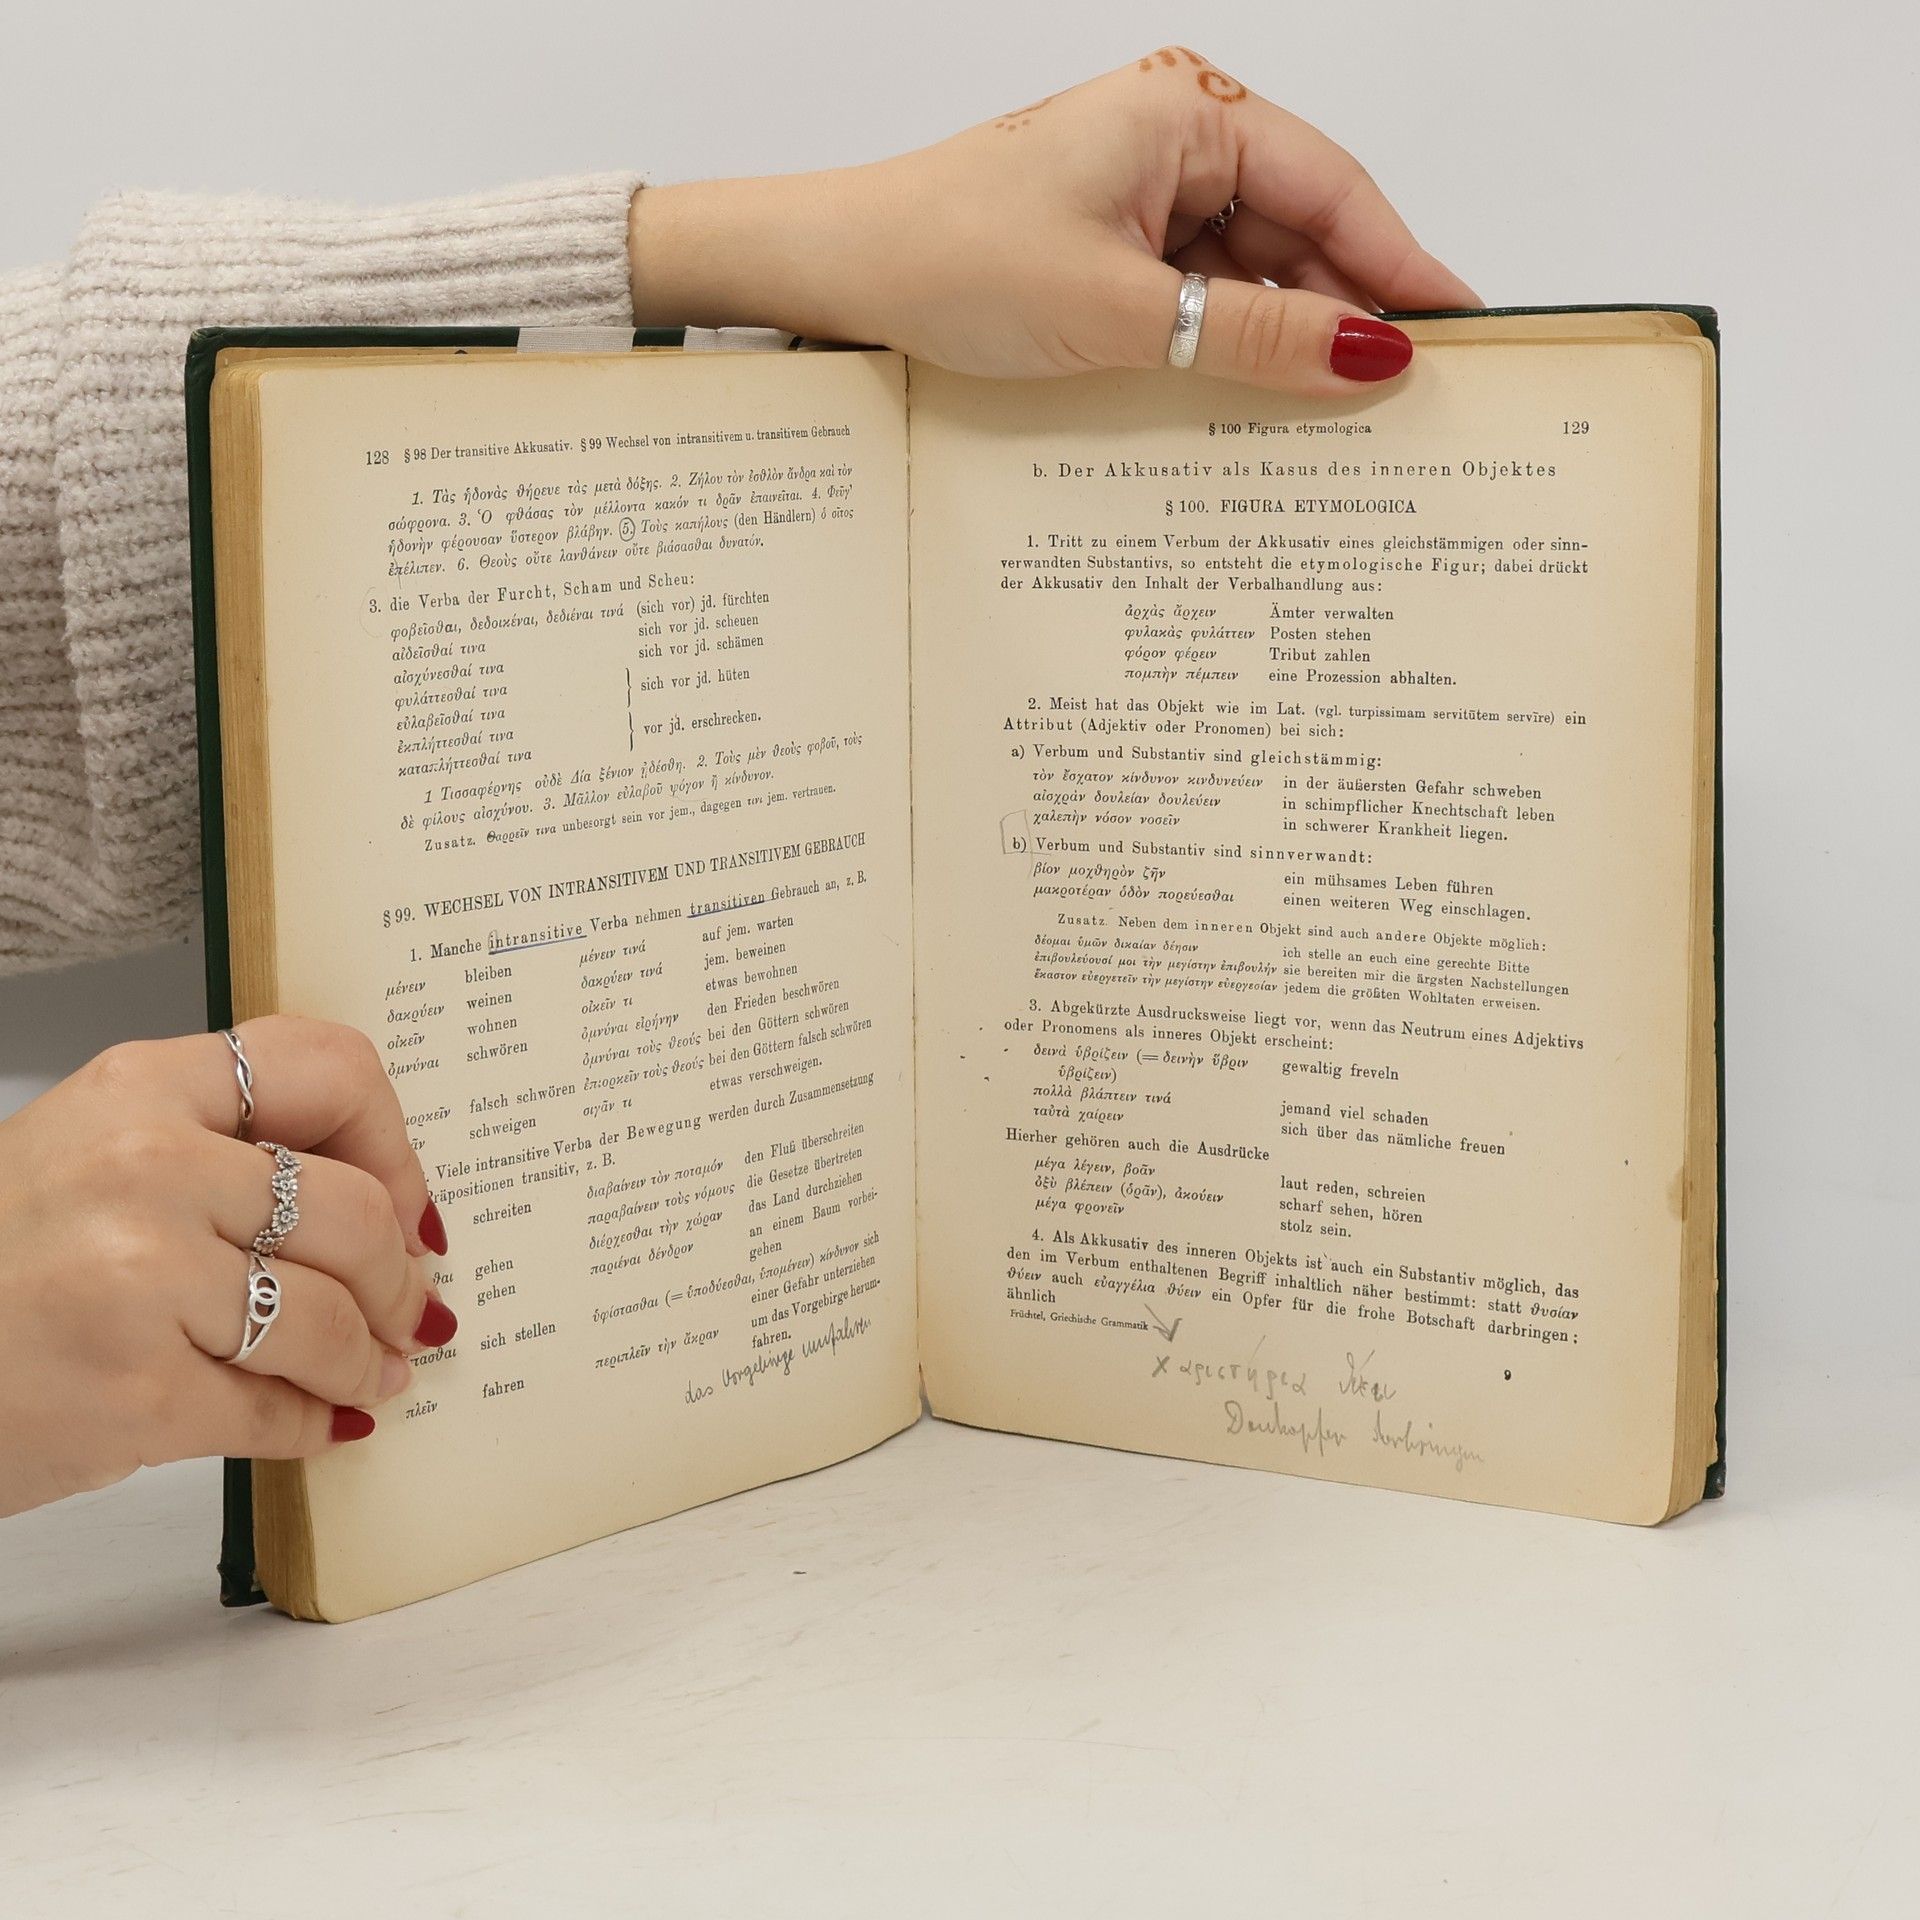 128 § 98 Der transitive Akkusativ. § 99 Wechsel von intransitivem u. transitivem Gebrauch
1. Τὰς ἡδονὰς θήρευε τὰς μετὰ δόξης. 2. Ζήλου τὸν ἐσθλὸν ἄνδρα καὶ τὸν
σώφρονα. 3. Ὁ φθάσας τὸν μέλλοντα κακόν τι δρᾶν ἐπαινεῖται. 4. Φεῦγ'
ἡδονὴν φέρουσαν ὕστερον βλάβην. 5. Τοὺς καπήλους (den Händlern) ὁ σῖτος
ἐπέλιπεν. 6. Θεοὺς οὔτε λανθάνειν οὔτε βιάσασθαι δυνατόν.
3. die Verba der Furcht, Scham und Scheu:
φοβεῖσθαι, δεδοικέναι, δεδιέναι τινά (sich vor) jd. fürchten
αἰδεῖσθαί τινα sich vor jd. scheuen
αἰσχύνεσθαί τινα sich vor jd. schämen
φυλάττεσθαί τινα
εὐλαβεῖσθαί τινα } sich vor jd. hüten
ἐκπλήττεσθαί τινα
καταπλήττεσθαί τινα } vor jd. erschrecken.
1 Τισσαφέρνης οὐδὲ Δία ξένιον ᾐδέσθη. 2. Τοὺς μὲν θεοὺς φοβοῦ, τοὺς
δὲ φίλους αἰσχύνου. 3. Μᾶλλον εὐλαβοῦ ψόγον ἢ κίνδυνον.
Zusatz. Θαρρεῖν τινα unbesorgt sein vor jem., dagegen τινι jem. vertrauen.
§ 99. WECHSEL VON INTRANSITIVEM UND TRANSITIVEM GEBRAUCH
1. Manche intransitive Verba nehmen transitiven Gebrauch an, z. B.
μένειν bleiben μένειν τινά auf jem. warten
δακρύειν weinen δακρύειν τινά jem. beweinen
οἰκεῖν wohnen οἰκεῖν τι etwas bewohnen
ὀμνύναι schwören ὀμνύναι εἰρήνην den Frieden beschwören
ὀμνύναι τοὺς θεούς bei den Göttern schwören
ιορκεῖν falsch schwören ἐπιορκεῖν τοὺς θεούς bei den Göttern falsch schwören
ᾶν schweigen σιγᾶν τι etwas verschweigen.
. Viele intransitive Verba der Bewegung werden durch Zusammensetzung
Präpositionen transitiv, z. B.
schreiten διαβαίνειν τὸν ποταμόν den Fluß überschreiten
παραβαίνειν τοὺς νόμους die Gesetze übertreten
θαι gehen διέρχεσθαι τὴν χώραν das Land durchziehen
gehen παριέναι δένδρον an einem Baum vorbei-
gehen
τασθαι sich stellen ὑφίστασθαι (= ὑποδύεσθαι, ὑπομένειν) κίνδυνον sich
einer Gefahr unterziehen
πλεῖν fahren περιπλεῖν τὴν ἄκραν um das Vorgebirge herum-
fahren.
das Vorgebirge umfahren
§ 100 Figura etymologica 129
b. Der Akkusativ als Kasus des inneren Objektes
§ 100. FIGURA ETYMOLOGICA
1. Tritt zu einem Verbum der Akkusativ eines gleichstämmigen oder sinn-
verwandten Substantivs, so entsteht die etymologische Figur; dabei drückt
der Akkusativ den Inhalt der Verbalhandlung aus:
ἀρχὰς ἄρχειν Ämter verwalten
φυλακὰς φυλάττειν Posten stehen
φόρον φέρειν Tribut zahlen
πομπὴν πέμπειν eine Prozession abhalten.
2. Meist hat das Objekt wie im Lat. (vgl. turpissimam servitūtem servīre) ein
Attribut (Adjektiv oder Pronomen) bei sich:
a) Verbum und Substantiv sind gleichstämmig:
τὸν ἔσχατον κίνδυνον κινδυνεύειν in der äußersten Gefahr schweben
αἰσχρὰν δουλείαν δουλεύειν in schimpflicher Knechtschaft leben
χαλεπὴν νόσον νοσεῖν in schwerer Krankheit liegen.
b) Verbum und Substantiv sind sinnverwandt:
βίον μοχθηρὸν ζῆν ein mühsames Leben führen
μακροτέραν ὁδὸν πορεύεσθαι einen weiteren Weg einschlagen.
Zusatz. Neben dem inneren Objekt sind auch andere Objekte möglich:
δέομαι ὑμῶν δικαίαν δέησιν ich stelle an euch eine gerechte Bitte
ἐπιβουλεύουσί μοι τὴν μεγίστην ἐπιβουλήν sie bereiten mir die ärgsten Nachstellungen
ἕκαστον εὐεργετεῖν τὴν μεγίστην εὐεργεσίαν jedem die größten Wohltaten erweisen.
3. Abgekürzte Ausdrucksweise liegt vor, wenn das Neutrum eines Adjektivs
oder Pronomens als inneres Objekt erscheint:
δεινὰ ὑβρίζειν (= δεινὴν ὕβριν gewaltig freveln
ὑβρίζειν)
πολλὰ βλάπτειν τινά jemand viel schaden
ταὐτὰ χαίρειν sich über das nämliche freuen
Hierher gehören auch die Ausdrücke
μέγα λέγειν, βοᾶν laut reden, schreien
ὀξὺ βλέπειν (ὁρᾶν), ἀκούειν scharf sehen, hören
μέγα φρονεῖν stolz sein.
4. Als Akkusativ des inneren Objekts ist auch ein Substantiv möglich, das
den im Verbum enthaltenen Begriff inhaltlich näher bestimmt: statt θυσίαν
θύειν auch εὐαγγέλια θύειν ein Opfer für die frohe Botschaft darbringen;
ähnlich
Früchtel, Griechische Grammatik
9
χαριστήρια
Dankopfer darbringen